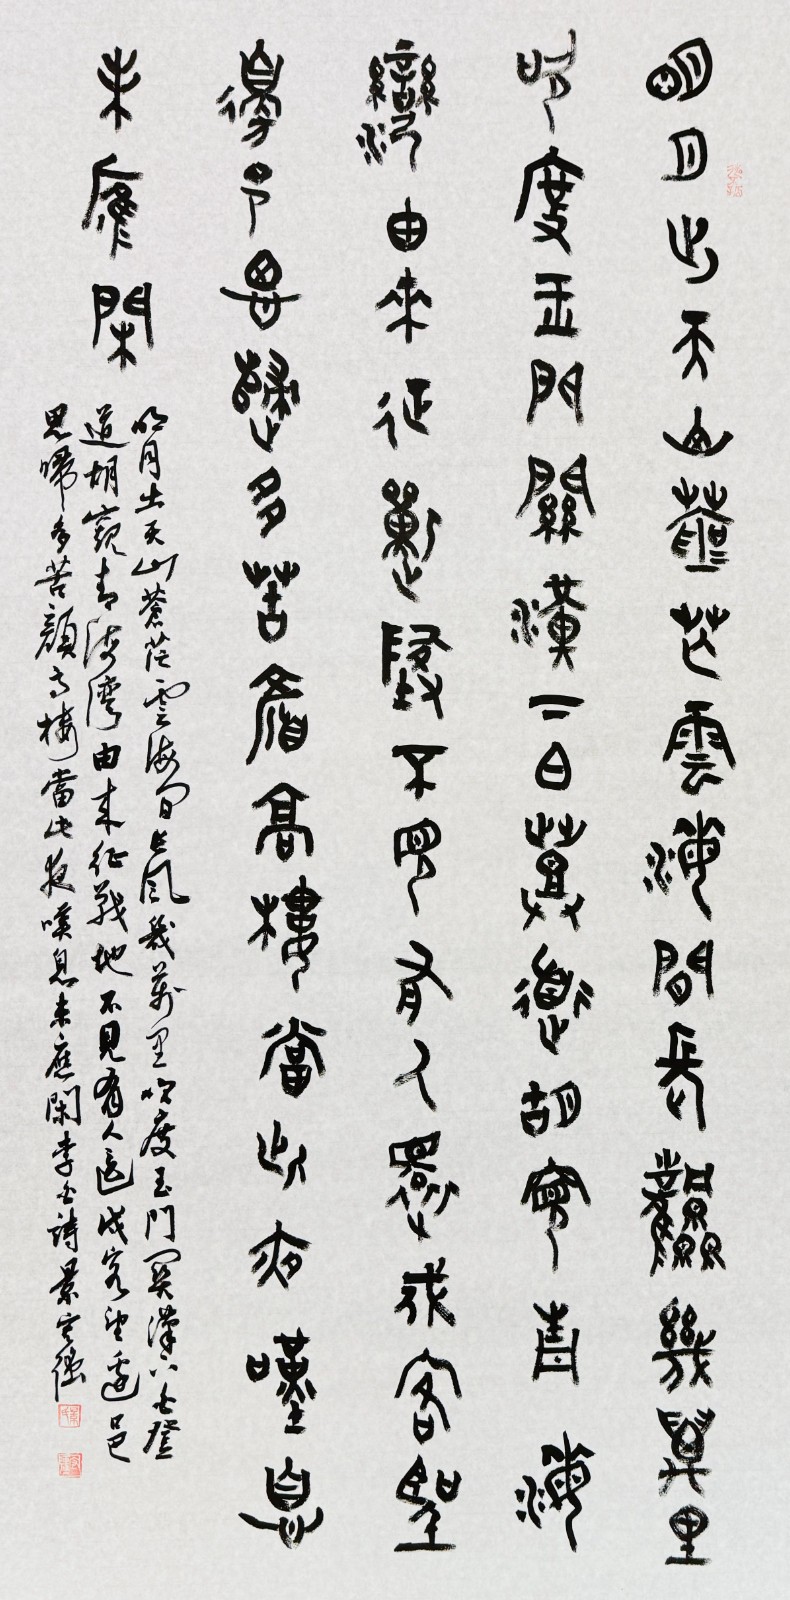 明月出天山蒼茫雲海間長風幾萬里
吹度玉門關漢下白登道胡窺青海
灣由來征戰地不見有人還戍客望
邊邑思歸多苦顏高樓當此夜嘆息
未應閑
明月出天山蒼茫雲海間長風幾萬里吹度玉門關漢下白登
道胡窺青海灣由來征戰地不見有人還戍客望邊邑
思歸多苦顏高樓當此夜嘆息未應閑李白詩景強